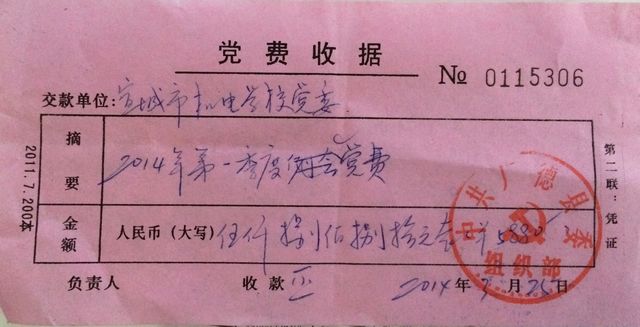 党费收据
№ 0115306
交款单位:宣城市机电学校党委
摘要 2014年第一季度党费
金额 人民币(大写)伍仟捌佰捌拾元整 ¥5880
负责人 收款 2014年3月25日
2011.7.200本
第二联:凭证
中共广德县委
组织部